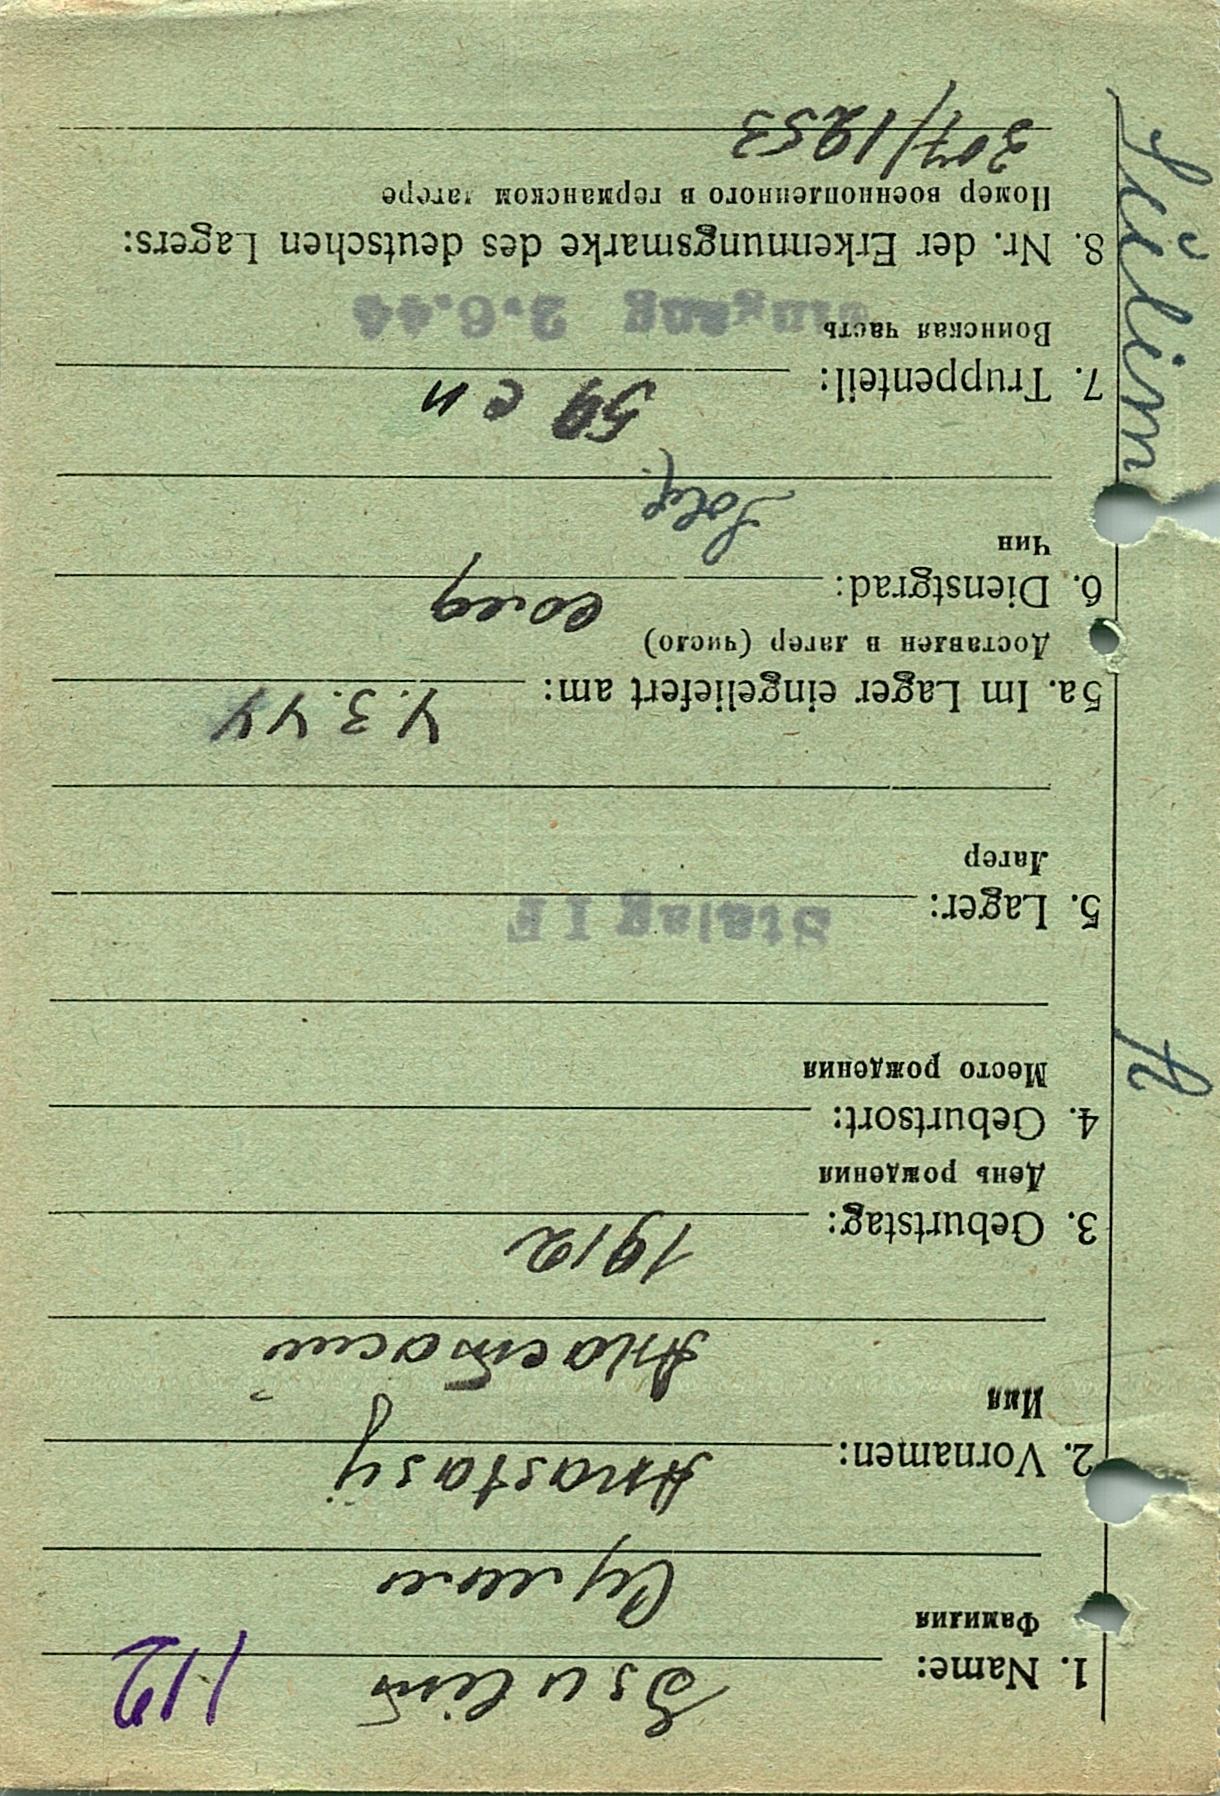 112
1. Name: Ssulim
Фамилия
Сулим
2. Vornamen: Anastasij
Имя
Анастасий
3. Geburtstag: 1912
День рождения
4. Geburtsort:
Место рождения
5. Lager: Stalag I F
Лагерь
5a. Im Lager eingeliefert am: 4.3.44
Доставлен в лагер (число)
6. Dienstgrad: солд
Чин
Sold.
7. Truppenteil: 59 сп
Воинская часть
Eingang 2.6.44
8. Nr. der Erkennungsmarke des deutschen Lagers:
Номер военнопленного в германском лагере
307/1253
A Sulim